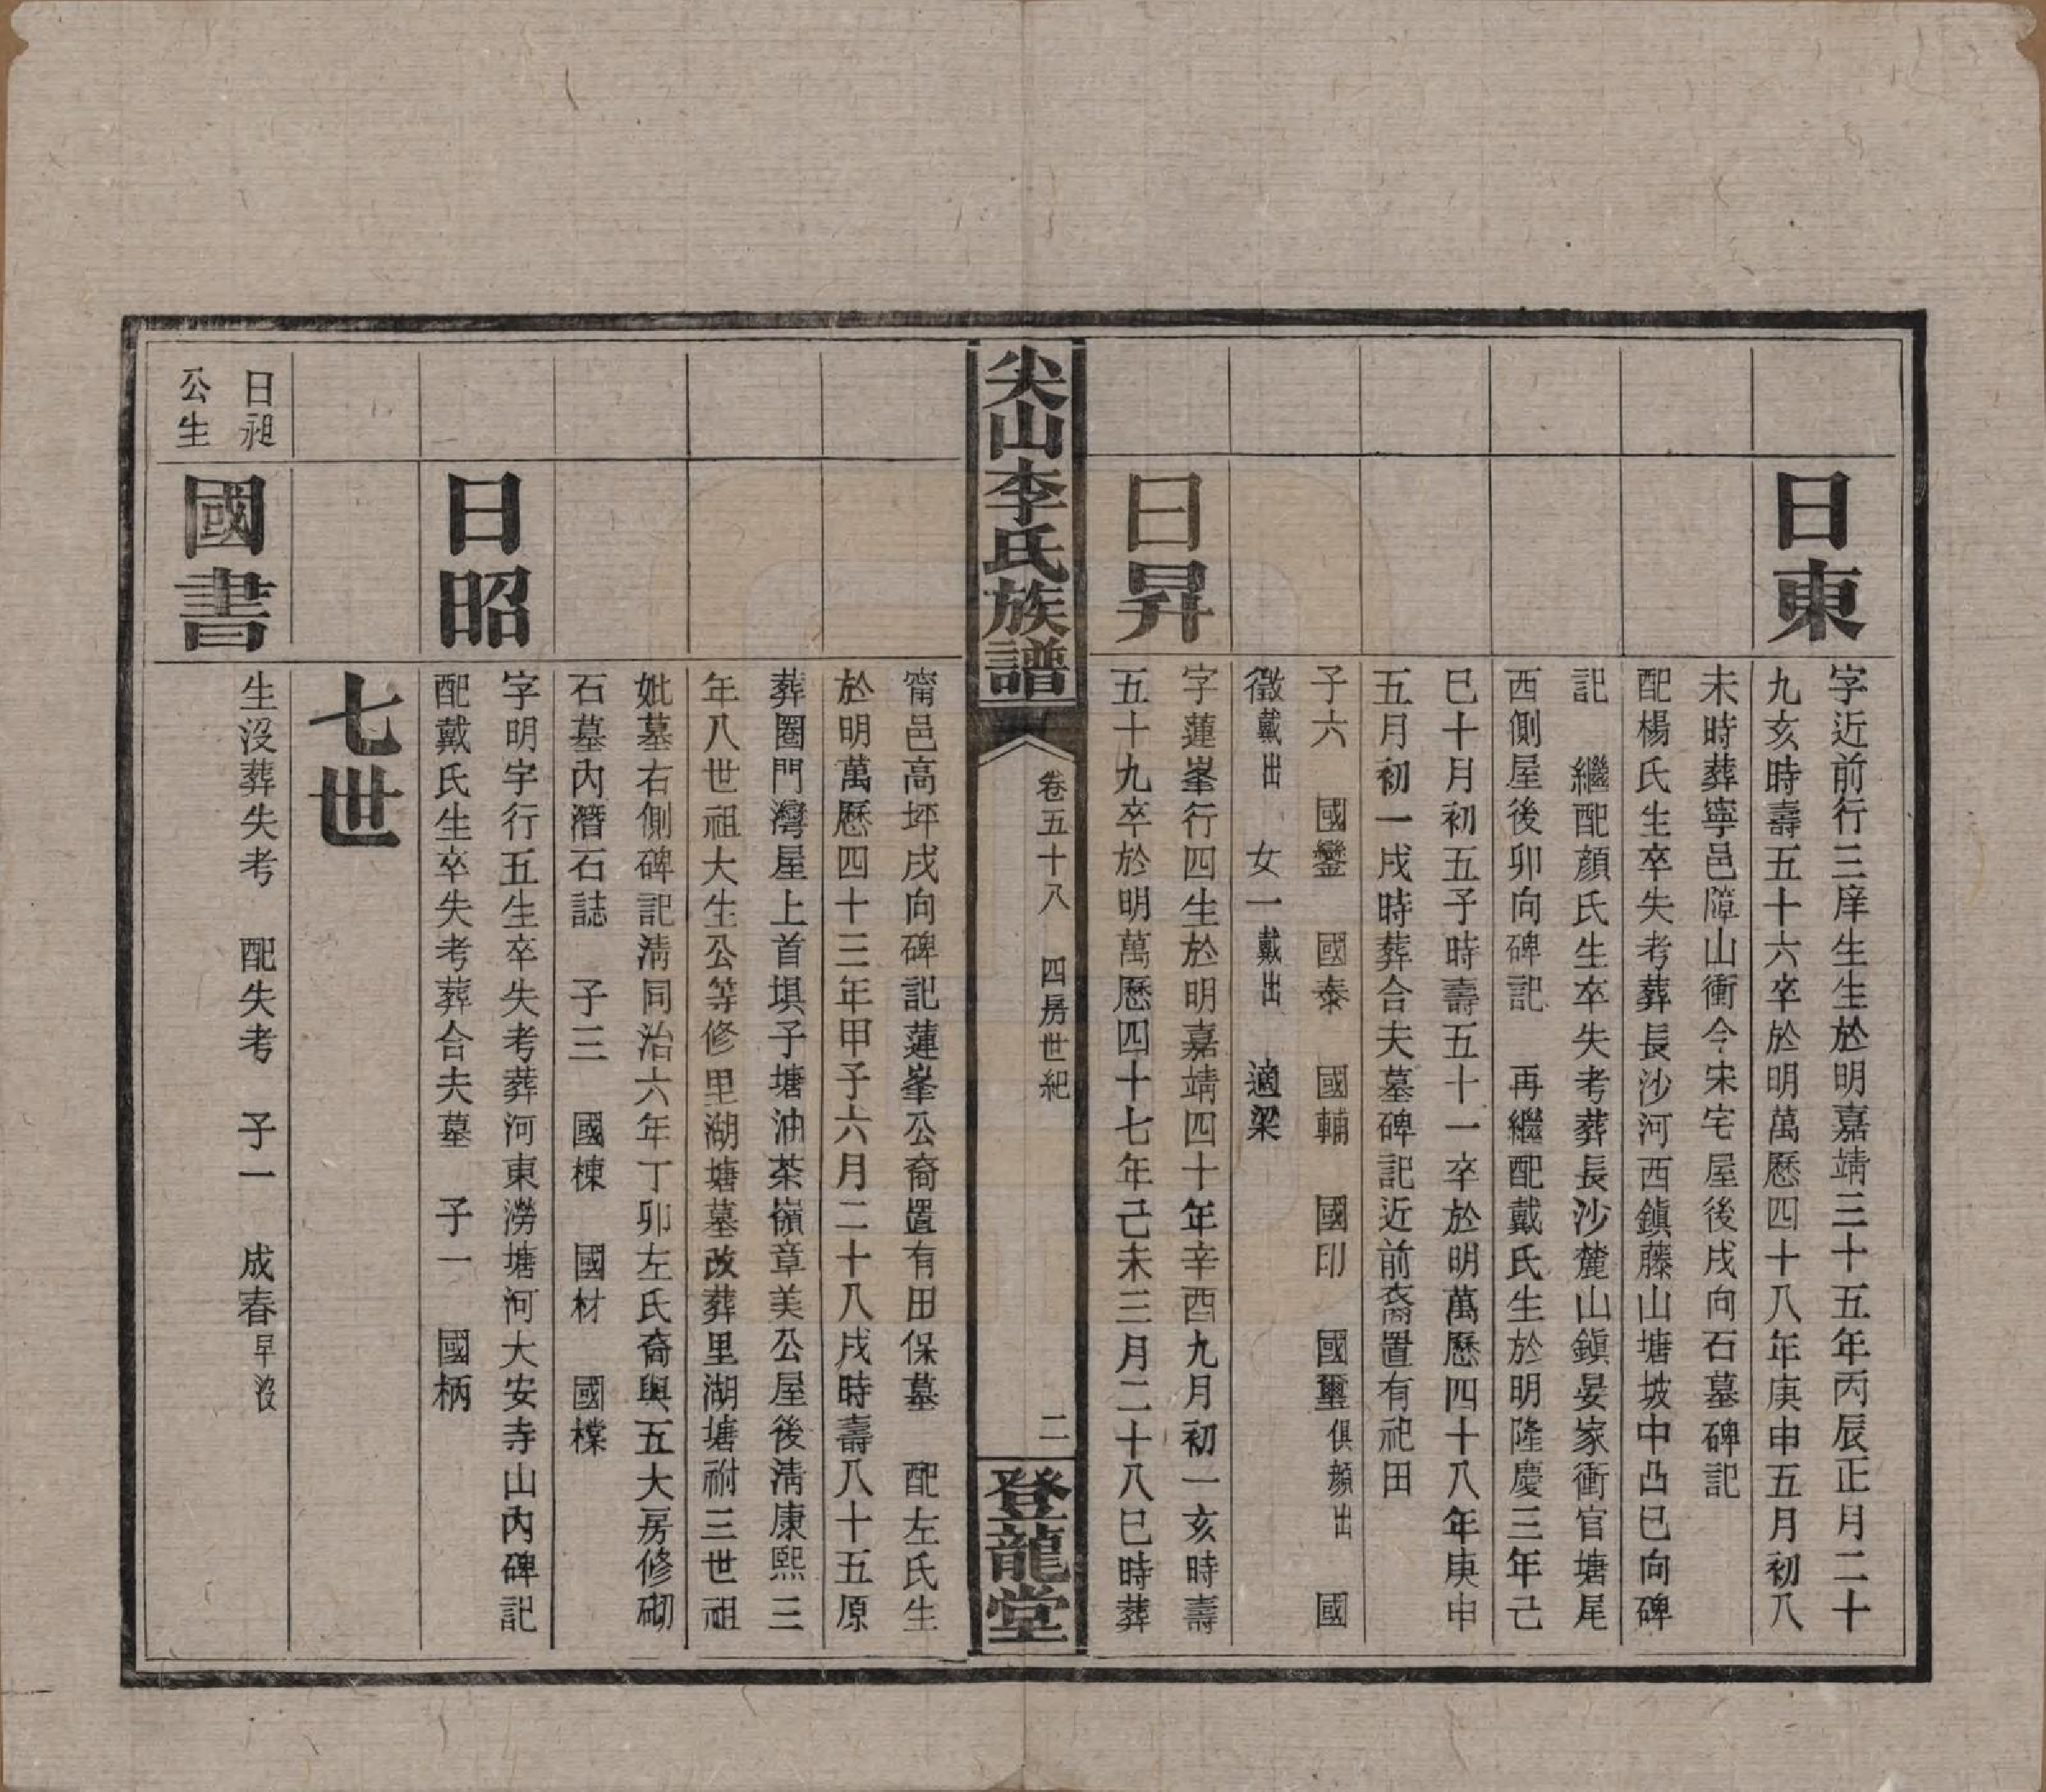 日東
字近前行三庠生生於明嘉靖三十五年丙辰正月二十
九亥時壽五十六卒於明萬歷四十八年庚申五月初八
未時葬寧邑障山衝今宋宅屋後戌向石墓碑記
配楊氏生卒失考葬長沙河西鎮藤山塘坡中凸巳向碑
記　繼配顏氏生卒失考葬長沙麓山鎮晏家衝官塘尾
西側屋後卯向碑記　再繼配戴氏生於明隆慶三年己
巳十月初五子時壽五十一卒於明萬歷四十八年庚申
五月初一戌時葬合夫墓碑記近前裔置有祀田
子六　國鑾　國泰　國輔　國印　國璽俱顏出　國
徵戴出　女一戴出　適梁
日昇
字蓮峯行四生於明嘉靖四十年辛酉九月初一亥時壽
五十九卒於明萬歷四十七年己未三月二十八巳時葬
尖山李氏族譜
卷五十八　四房世紀
二
登龍堂
甯邑高坪戌向碑記蓮峯公裔置有田保墓　配左氏生
於明萬歷四十三年甲子六月二十八戌時壽八十五原
葬圈門灣屋上首垻子塘油茶嶺章美公屋後清康熙三
年八世祖大生公等修里湖塘墓改葬里湖塘祔三世祖
妣墓右側碑記清同治六年丁卯左氏裔與五大房修砌
石墓內潛石誌　子三　國棟　國材　國樸
日昭
字明宇行五生卒失考葬河東澇塘河大安寺山內碑記
配戴氏生卒失考葬合夫墓　子一　國柄
七世
日祖
公生
國書
生沒葬失考　配失考　子一　成春早沒